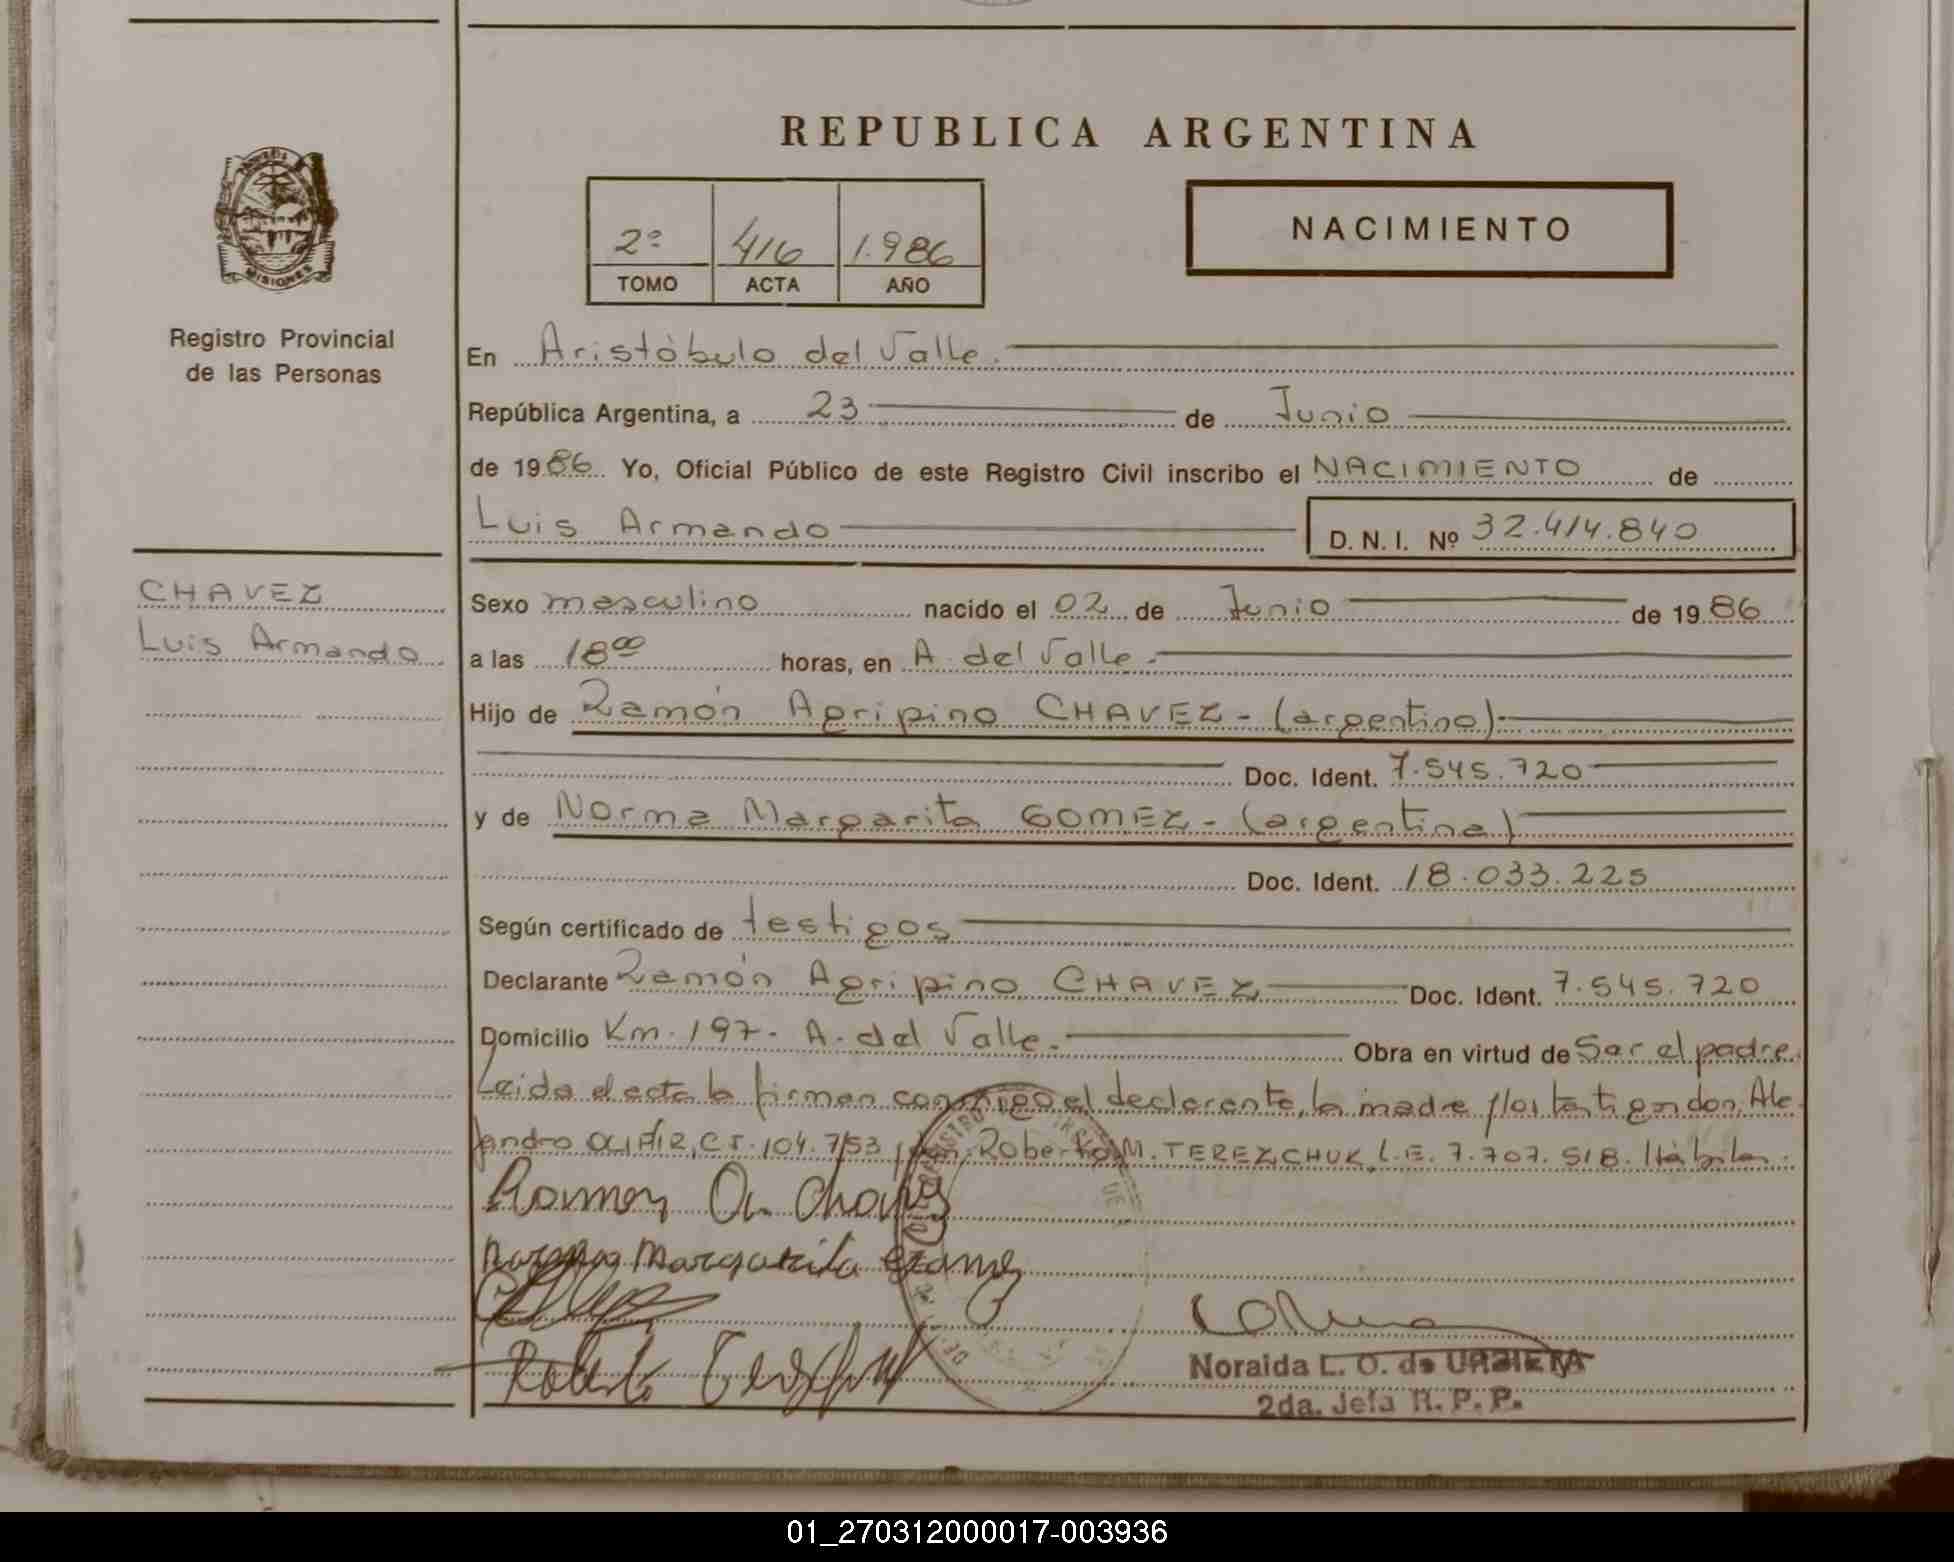 REPUBLICA ARGENTINA
MISIONES
Registro Provincial
de las Personas
2º 416 1.986
TOMO ACTA AÑO
NACIMIENTO
En Aristóbulo del Valle.
República Argentina, a 23 de Junio
de 1986 Yo, Oficial Público de este Registro Civil inscribo el NACIMIENTO de
Luis Armando D. N. I. Nº 32.414.840
CHAVEZ
Luis Armando
Sexo masculino nacido el 02 de Junio de 1986
a las 18⁰⁰ horas, en A. del Valle.
Hijo de Ramón Agripino CHAVEZ - (argentino)-
Doc. Ident. 7.545.720
y de Norma Margarita GOMEZ - (argentina)
Doc. Ident. 18.033.225
Según certificado de testigos
Declarante Ramón Agripino CHAVEZ Doc. Ident. 7.545.720
Domicilio Km. 197- A. del Valle. Obra en virtud de Ser el padre.
Leida el acta la firman conmigo el declarante, la madre y los testigos don Ale-
jandro C.I. 104.753 y don Roberto M. TEREZCHUK, L.E. 7.707.518. Hábiles.
Ramon A. Chavez
Norma Margarita Gomez
Roberto
Noraida L. O. de URBIETA
2da. Jefa R. P. P.
01_270312000017-003936